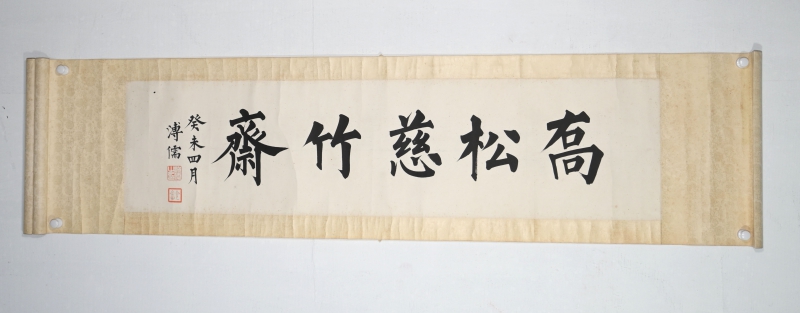 高松慈竹齋
癸未四月
溥儒